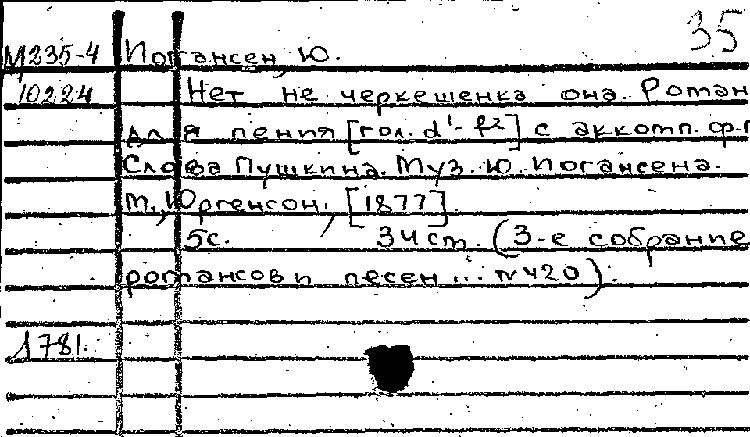 35
М235-4 Иогансен, Ю.
10224 Нет не черкешенка она. Роман
для пения [гол. d¹-f²] с аккомп. ф-п
Слова Пушкина. Муз. Ю. Иогансена.
М., Юргенсон, [1877].
5с. 34 cm. (3-е собрание
романсов и песен... №420).
1781.